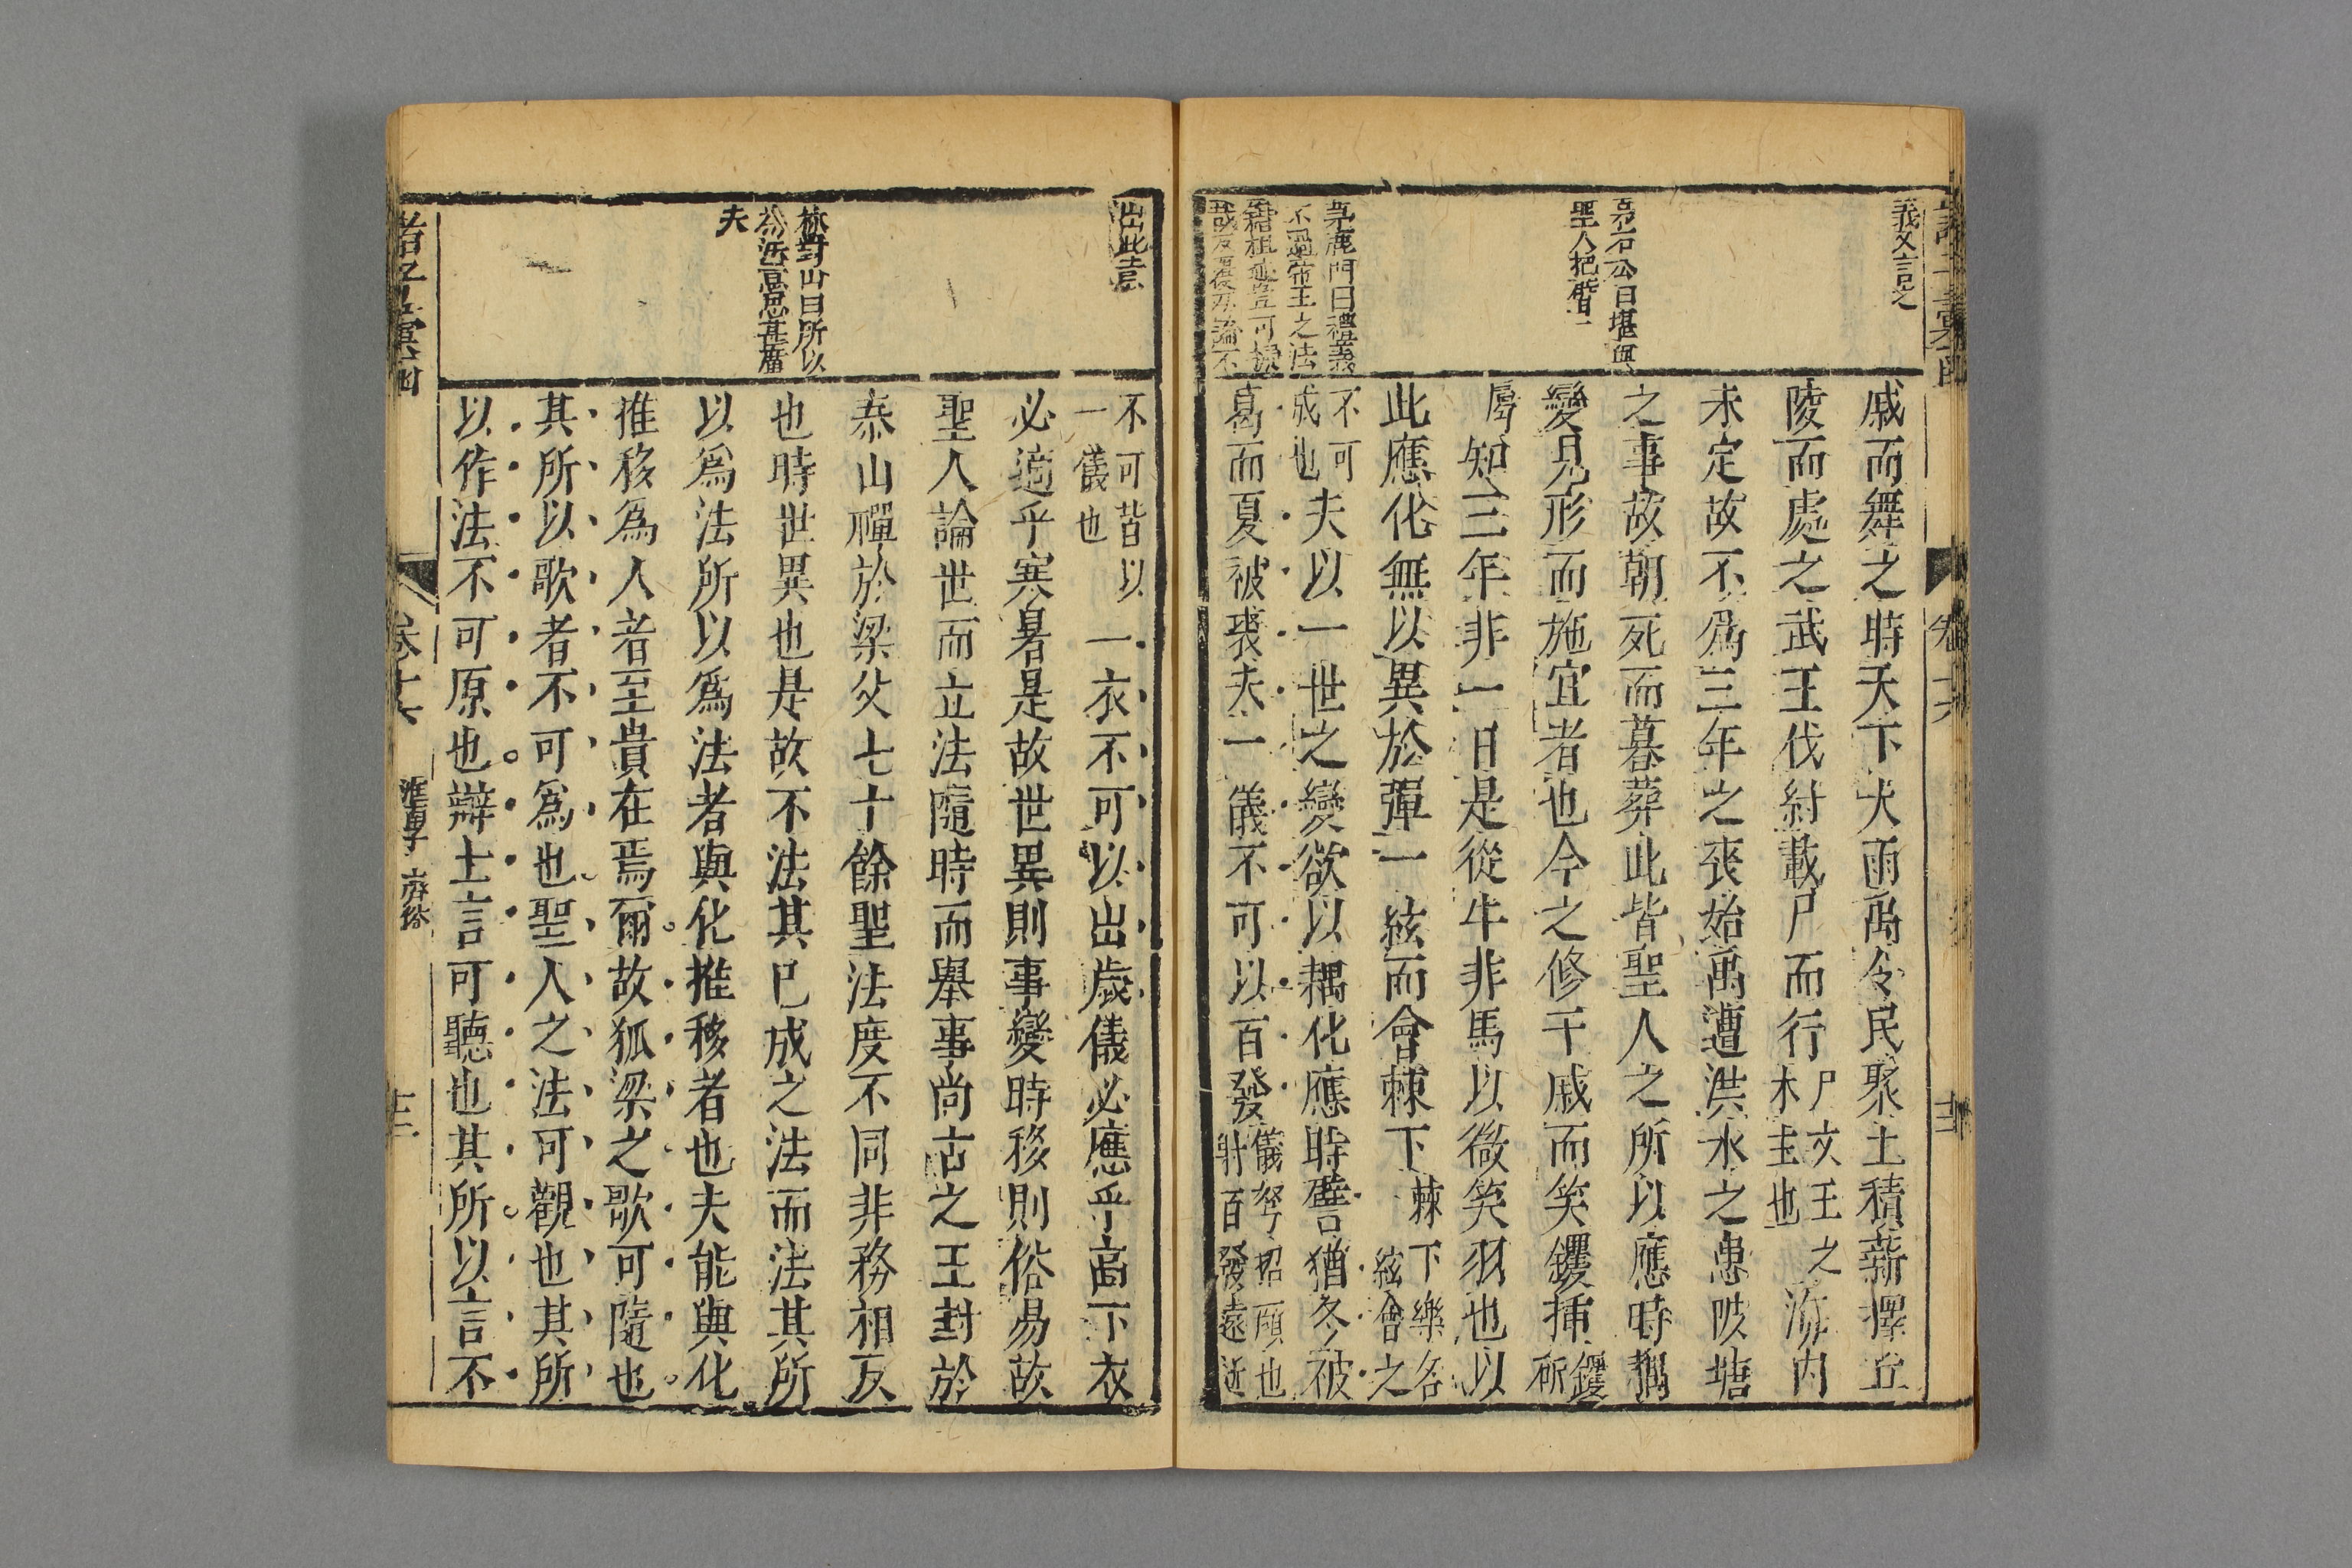 義文言之
袁石公曰堪與
聖人把臂
茅鹿門曰禮義
不過帝王之法
籍祖豈可
戚而舞之時天下大雨禹令民聚土積薪擇丘
陵而處之武王伐紂載尸而行尸文王之木主也海內
未定故不爲三年之喪始禹遭洪水之患陂塘
之事故朝死而暮葬此皆聖人之所以應時耦
變見形而施宜者也今之修干戚而笑钁揷钁斫
屬知三年非一日是從牛非馬以徵笑羽也以
此應化無以異於彈一絃而會棘下棘下樂名絃會之
不可成也夫以一世之變欲以耦化應時譬猶冬被
葛而夏被裘夫一儀不可以百發儀弩招頭也射百發遠近
卷十六
出此意
林對山曰所以
爲法意思甚廣
夫
不可皆以一儀也一衣不可以出歲儀必應乎高下衣
必適乎寒暑是故世異則事變時移則俗易故
聖人論世而立法隨時而舉事尚古之王封於
泰山禪於梁父七十餘聖法度不同非務相反
也時世異也是故不法其已成之法而法其所
以爲法所以爲法者與化推移者也夫能與化
推移爲人者至貴在焉爾故狐梁之歌可隨也
其所以歌者不可爲也聖人之法可觀也其所
以作法不可原也辯士言可聽也其所以言不
諸子彙函
卷十六
淮南子 齊俗